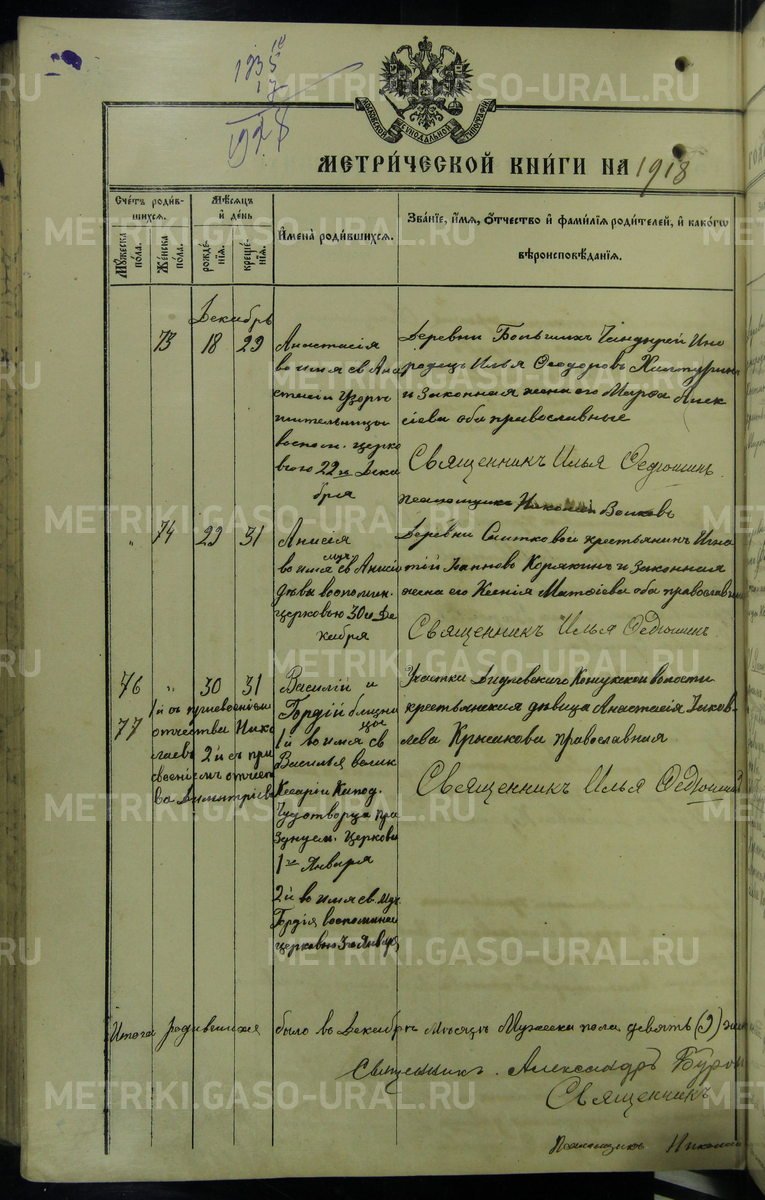 1735
17
1928
МОСКОВСКОЙ СѴНОДАЛЬНОЙ ТИПОГРАФІИ
МЕТРИ́ЧЕСКОЙ КНИ́ГИ НА 1918
Сче́тъ роди́в-
шихсѧ.
Мѣ́сѧцъ
и҆ де́нь
Мꙋ́жеска по́ла.
Же́нска по́ла.
рожде́-
нїѧ.
креще́-
нїѧ.
И҆мена̀ роди́вшихсѧ.
Зва́нїе, и҆́мѧ, ѻ҆́тчество и҆ фами́лїѧ роди́телей, и҆ како́гѡ
вѣроисповѣ́данїѧ.
Декабрь
73 18 29
Анастасія
во имя св Ана
стасіи Узорѣ
шительницы
воспом. церко
вью 22го Дека
бря
Деревни Большихъ Ино
родецъ Илья Ѳеодоровъ
и законная жена его Марѳа Алек
сіева оба православные
Священникъ Илья Федюшинъ
псаломщикъ Николай Волковъ
„ 74 29 31
Анисія
во имя св мцы Анисіи
дѣвы воспомин.
церковью 30го Де
кабря
Деревни крестьянинъ Игна
тій Іоанновъ Корякинъ и законная
жена его Ксенія Матѳіева оба православны
Священникъ Илья Федюшинъ
76 „ 30 31
77
1й съ присвоеніемъ
отчества Нико
лаевъ 2й съ при
своеніемъ отчест
ва Димитріевъ
Василій и
Гордій близне
цы
1й во имя св
Василья велик
Кесаріи Капод.
Чудотворца пра
зднуем. Церковью
1го Января
2й во имя св. муч
Гордія воспоминаем
церковью 3го Января
Участка волости
крестьянская дѣвица Анастасія Іаков
лева Крысакова православная
Священникъ Илья Федюшинъ
Итого родившихся было въ Декабрѣ мѣсяцѣ Мужеска пола девять (9)
Священникъ Александръ
Священникъ
Псаломщикъ Николай
METRIKI.GASO-URAL.RU